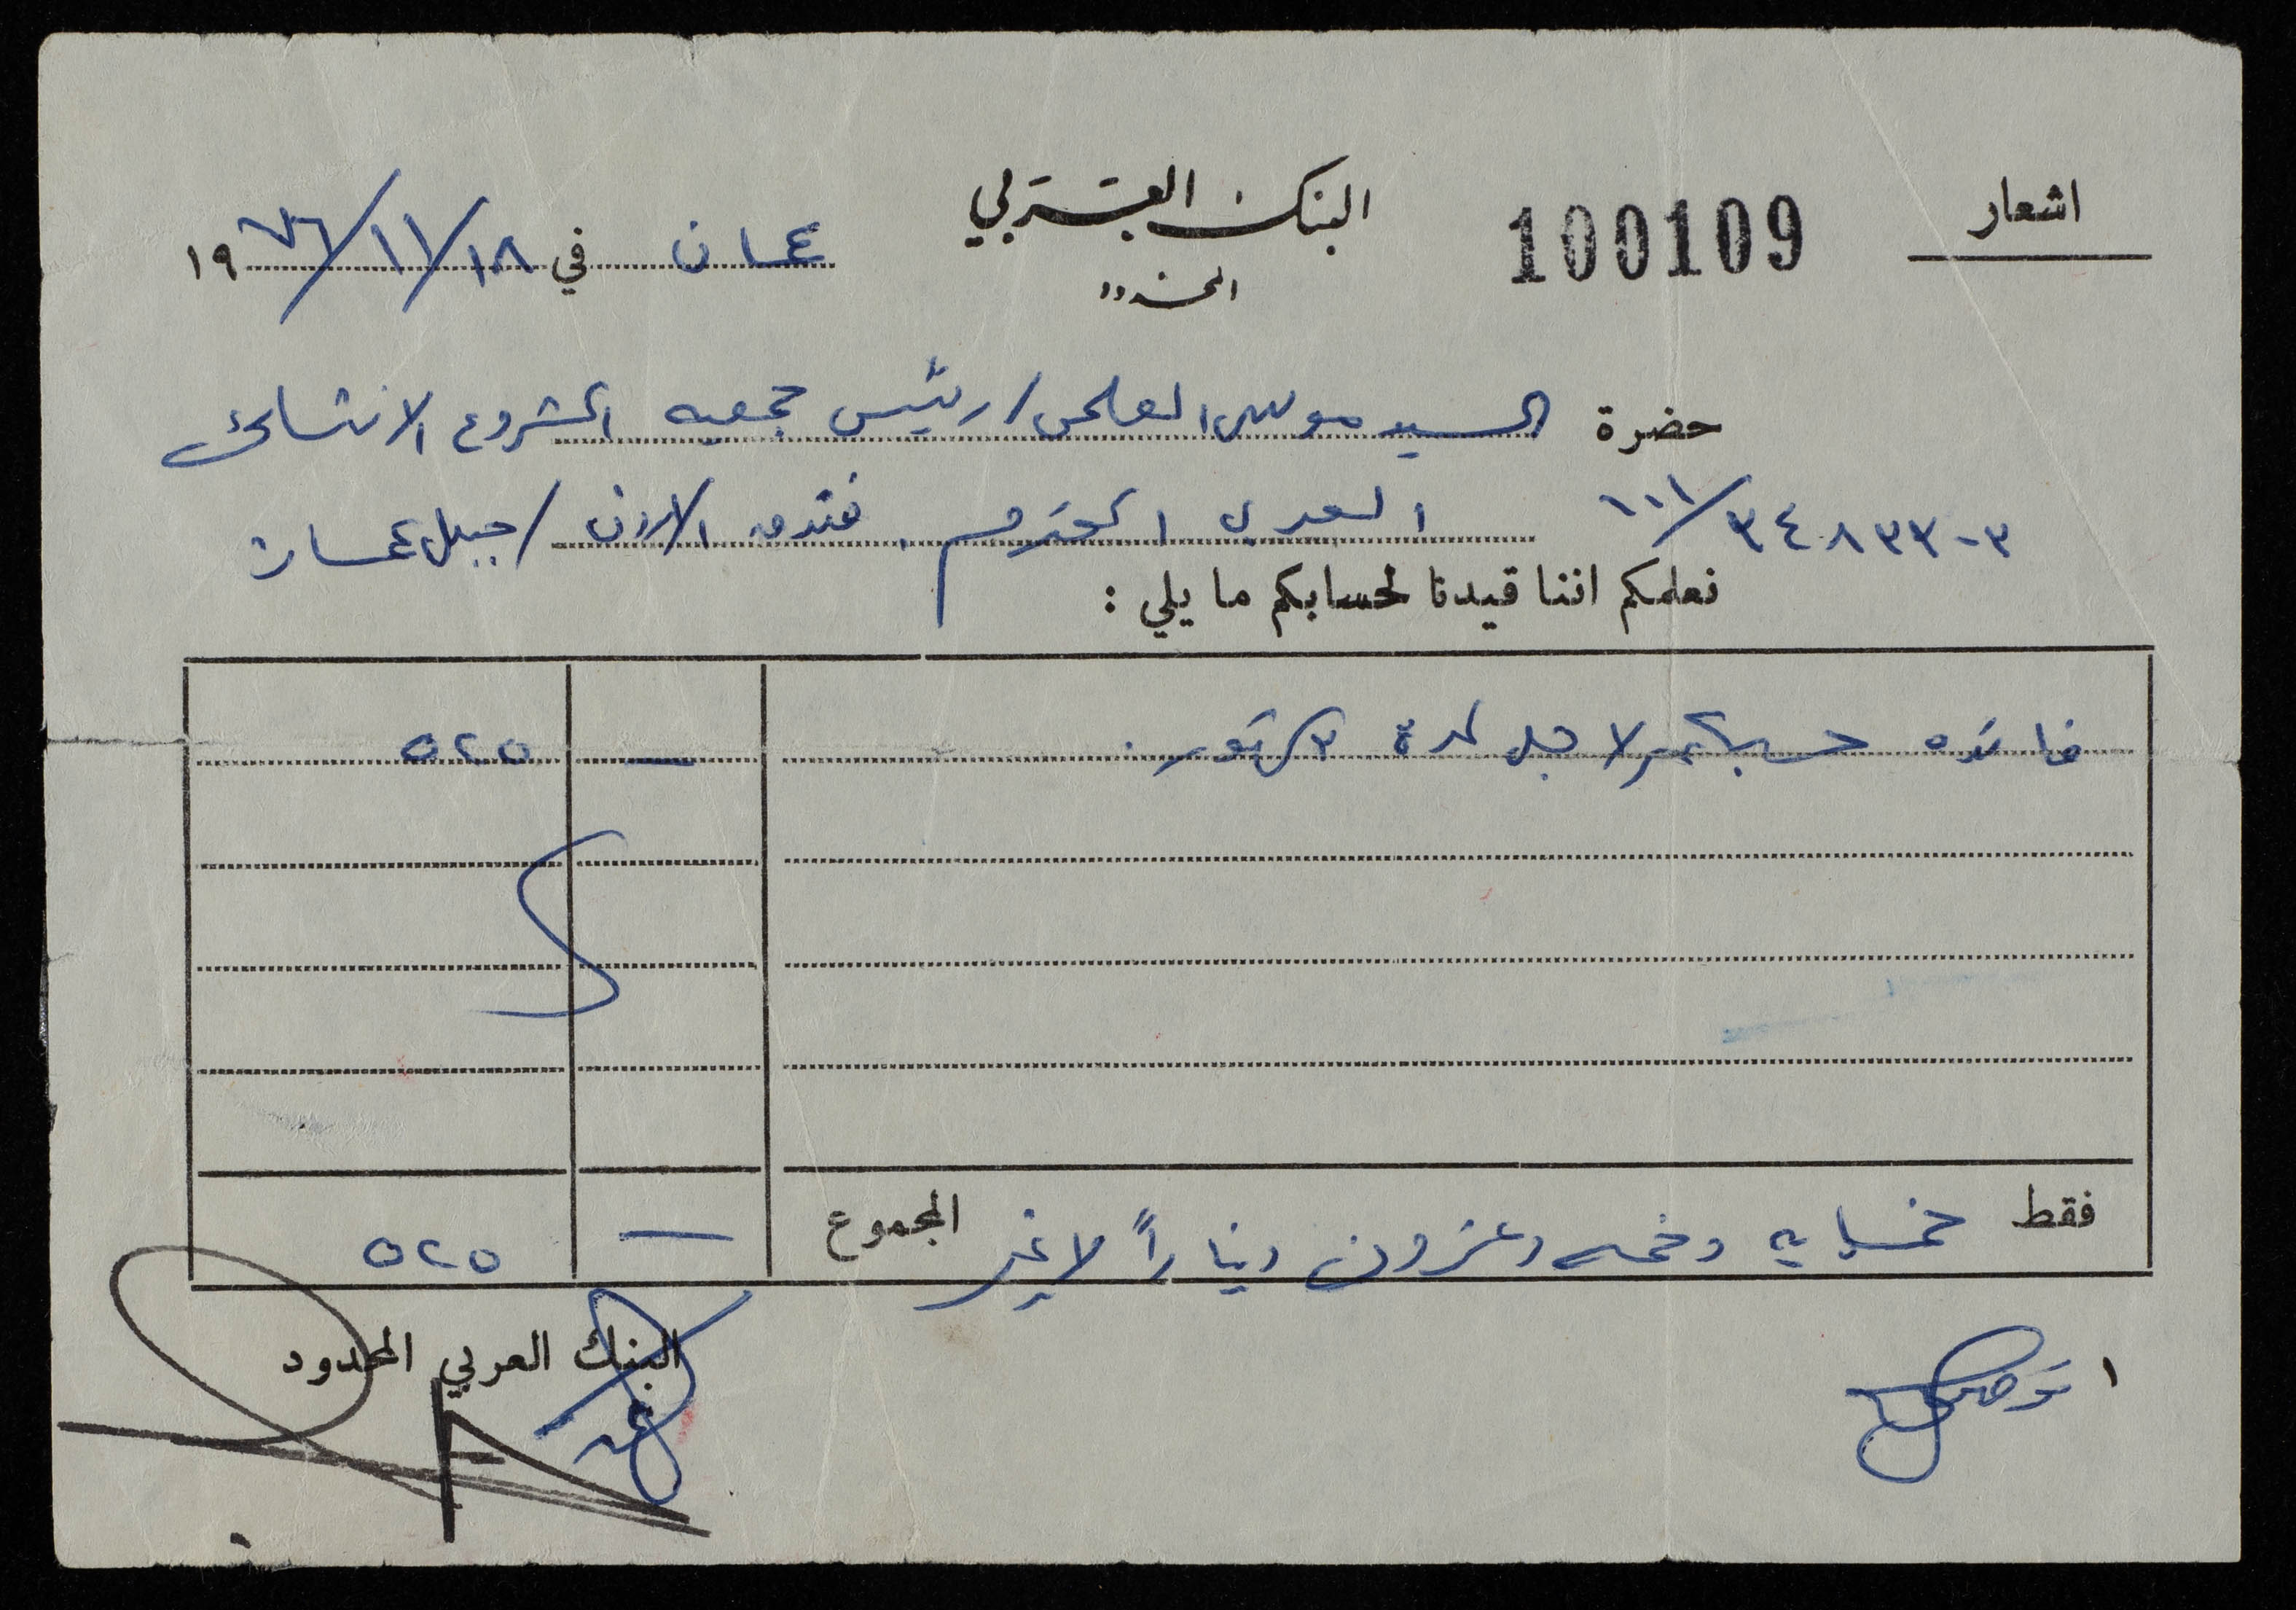 اشعار
100109
البنك العربي
المحدود
عمان في ١٨/١١/١٩٧٦
حضرة السيد موسى العلمي / رئيس جمعيه المشروع الانشائي
العربي المحترم فندق الاردن / جبل عمان
نعلمكم اننا قيدنا لحسابكم ما يلي :
فائده حسابكم لاجل لمدة ٣ شهور . — ٥٢٥
فقط خمسماية وخمسه وعشرون ديناراً لا غير المجموع — ٥٢٥
البنك العربي المحدود